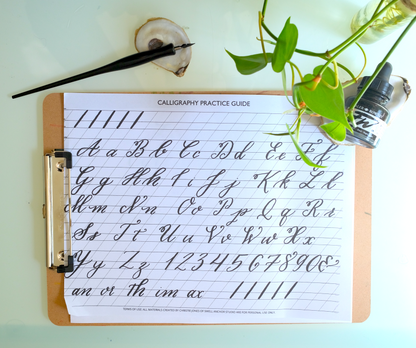 CALLIGRAPHY PRACTICE GUIDE
A a B b C c D d E e F f
G g H h I i J j K k L l
M m N n O o P p Q q R r
S s T t U u V v W w X x
Y y Z z 1 2 3 4 5 6 7 8 9 0 &
an or th im ax